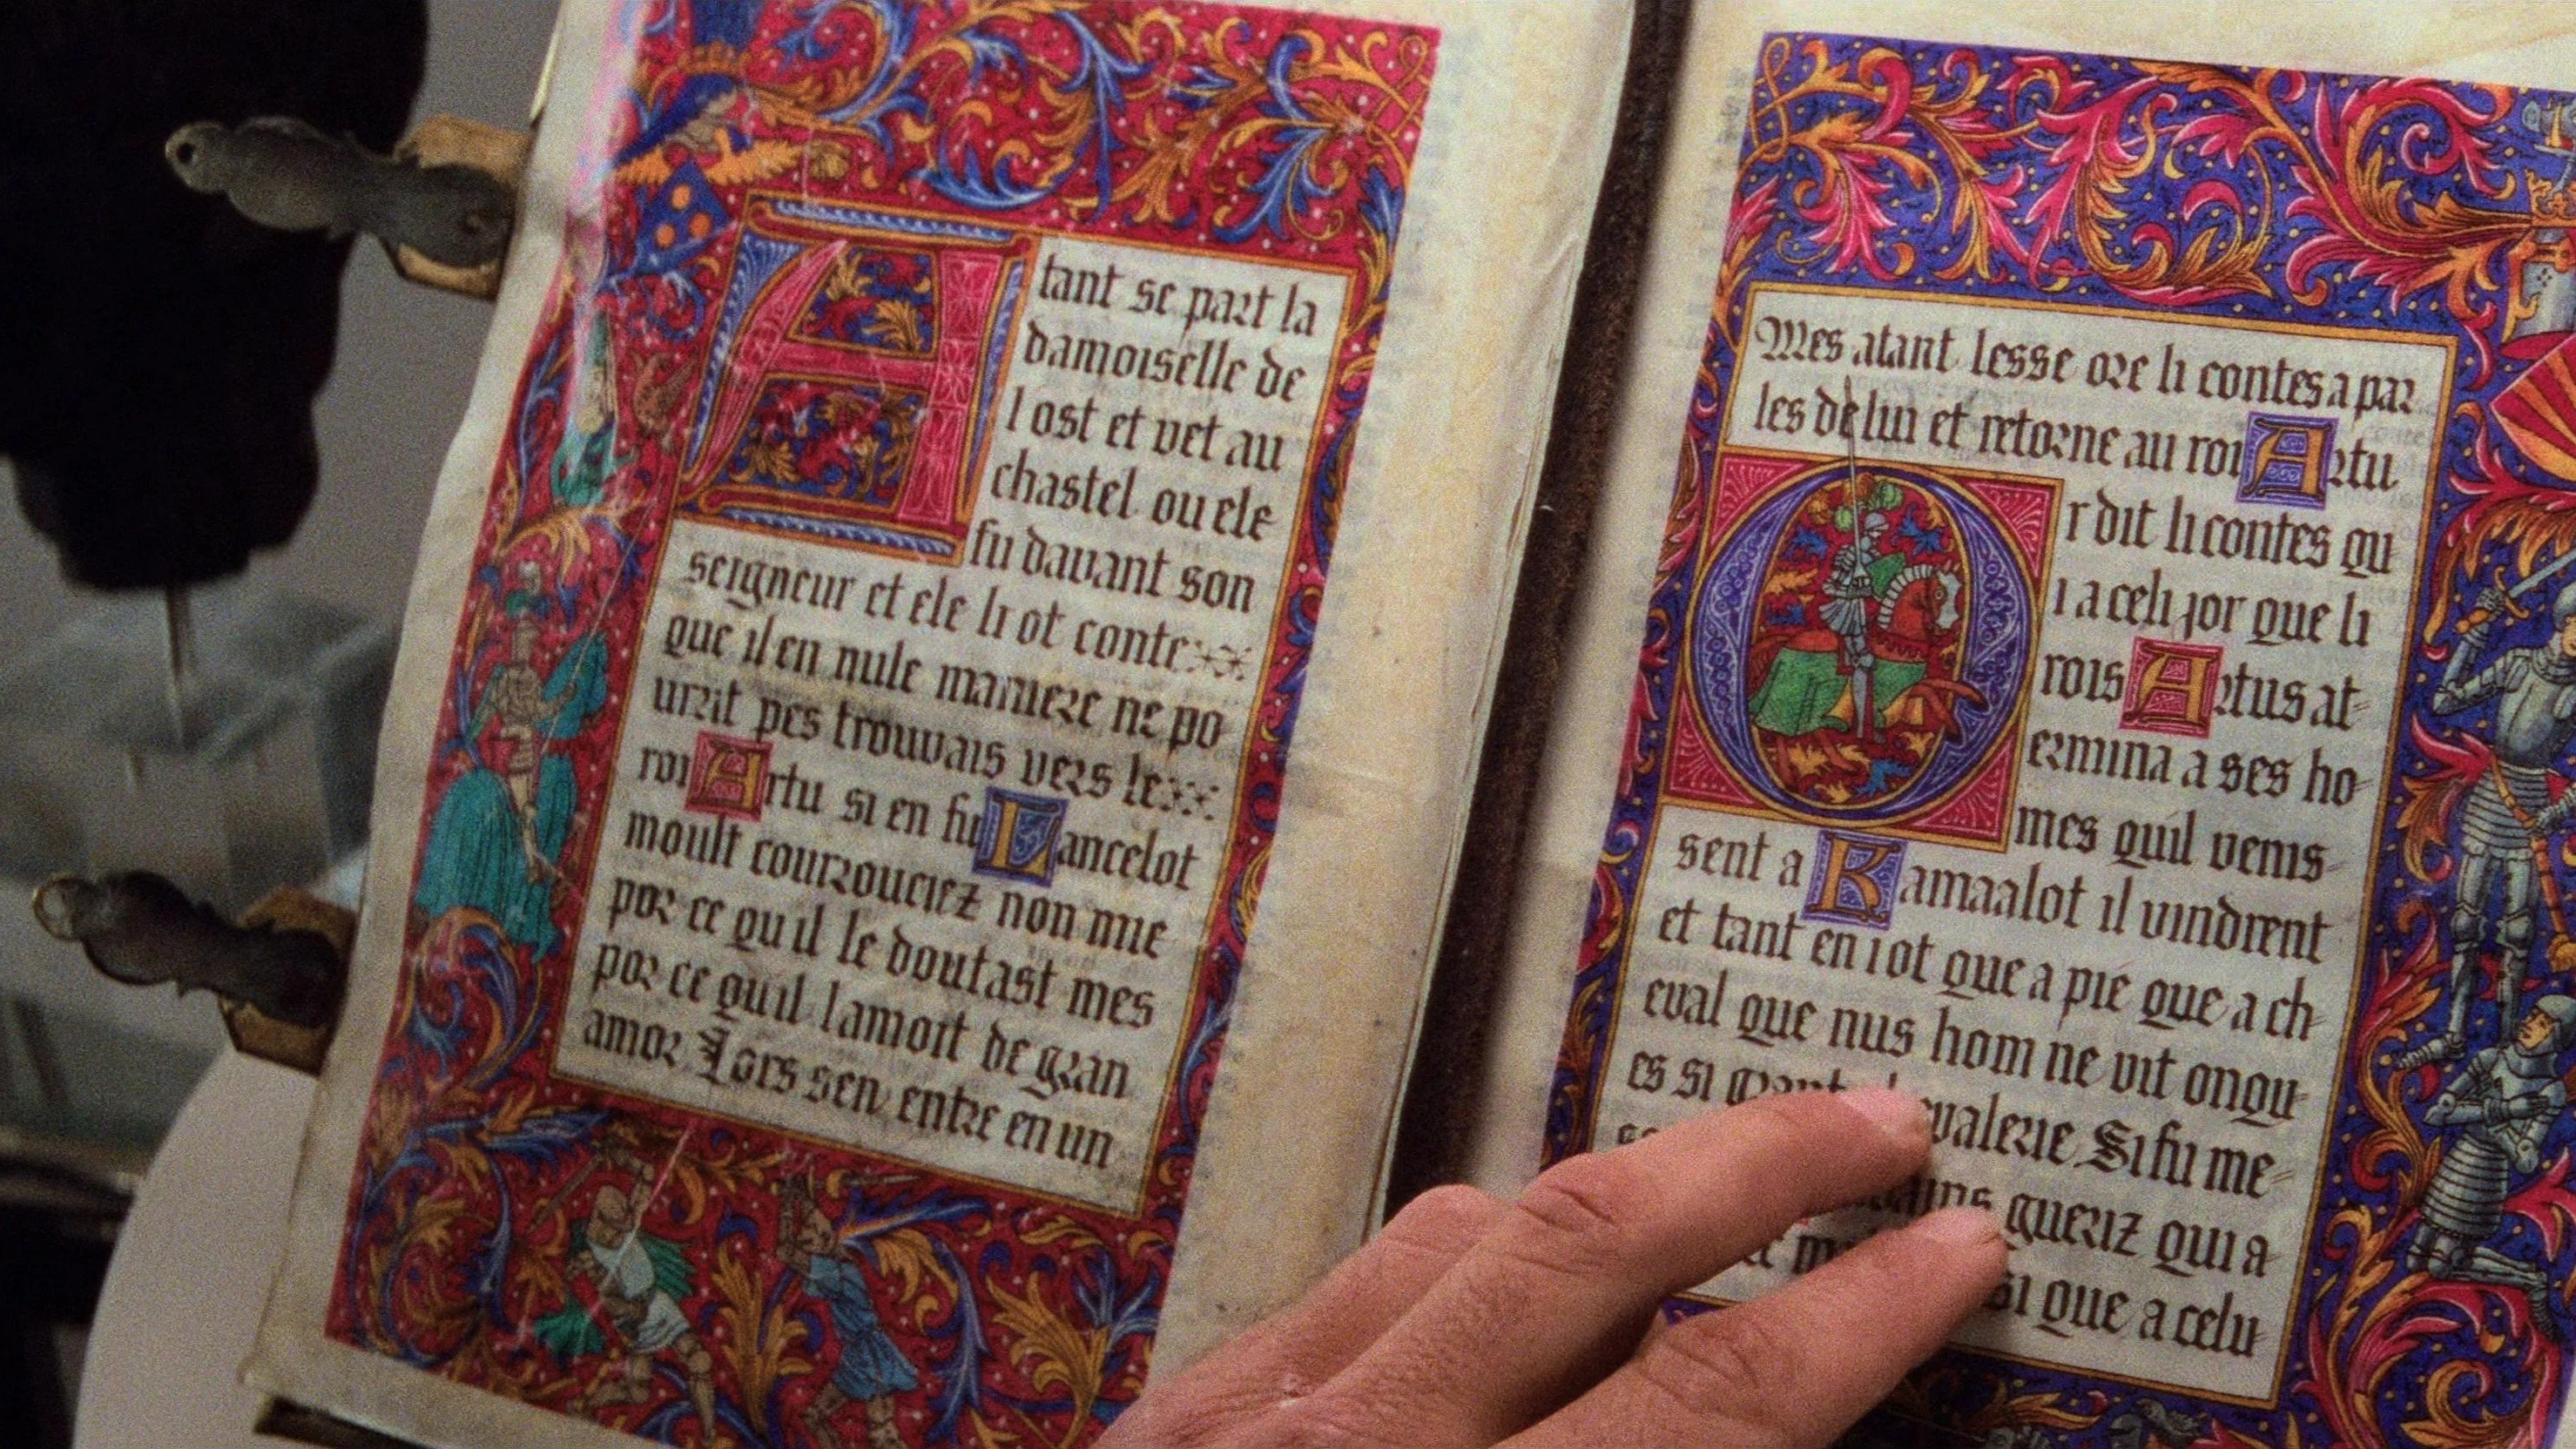 Atant se part la
damoiselle de
l ost et vet au
chastel ou ele
fu davant son
seigneur et ele li ot conte
que il en nule maniere ne po
urrit pes trouvais vers le
roi Artu si en fu Lancelot
moult courrouciez non mie
por ce qu il le doutast mes
por ce quil lamoit de gran
amor Lors sen entre en un
Mes atant lesse ore li contes a par
les de lui et retorne au roi Artu
Or dit li contes qu
i a celi jor que li
rois Artus at
ermina a ses ho
mes quil venis
sent a Kamaalot il vindrent
et tant en i ot que a pie que a ch
eval que nus hom ne vit onqu
es si valerie Si fu me
gueriz qui a
si que a celu